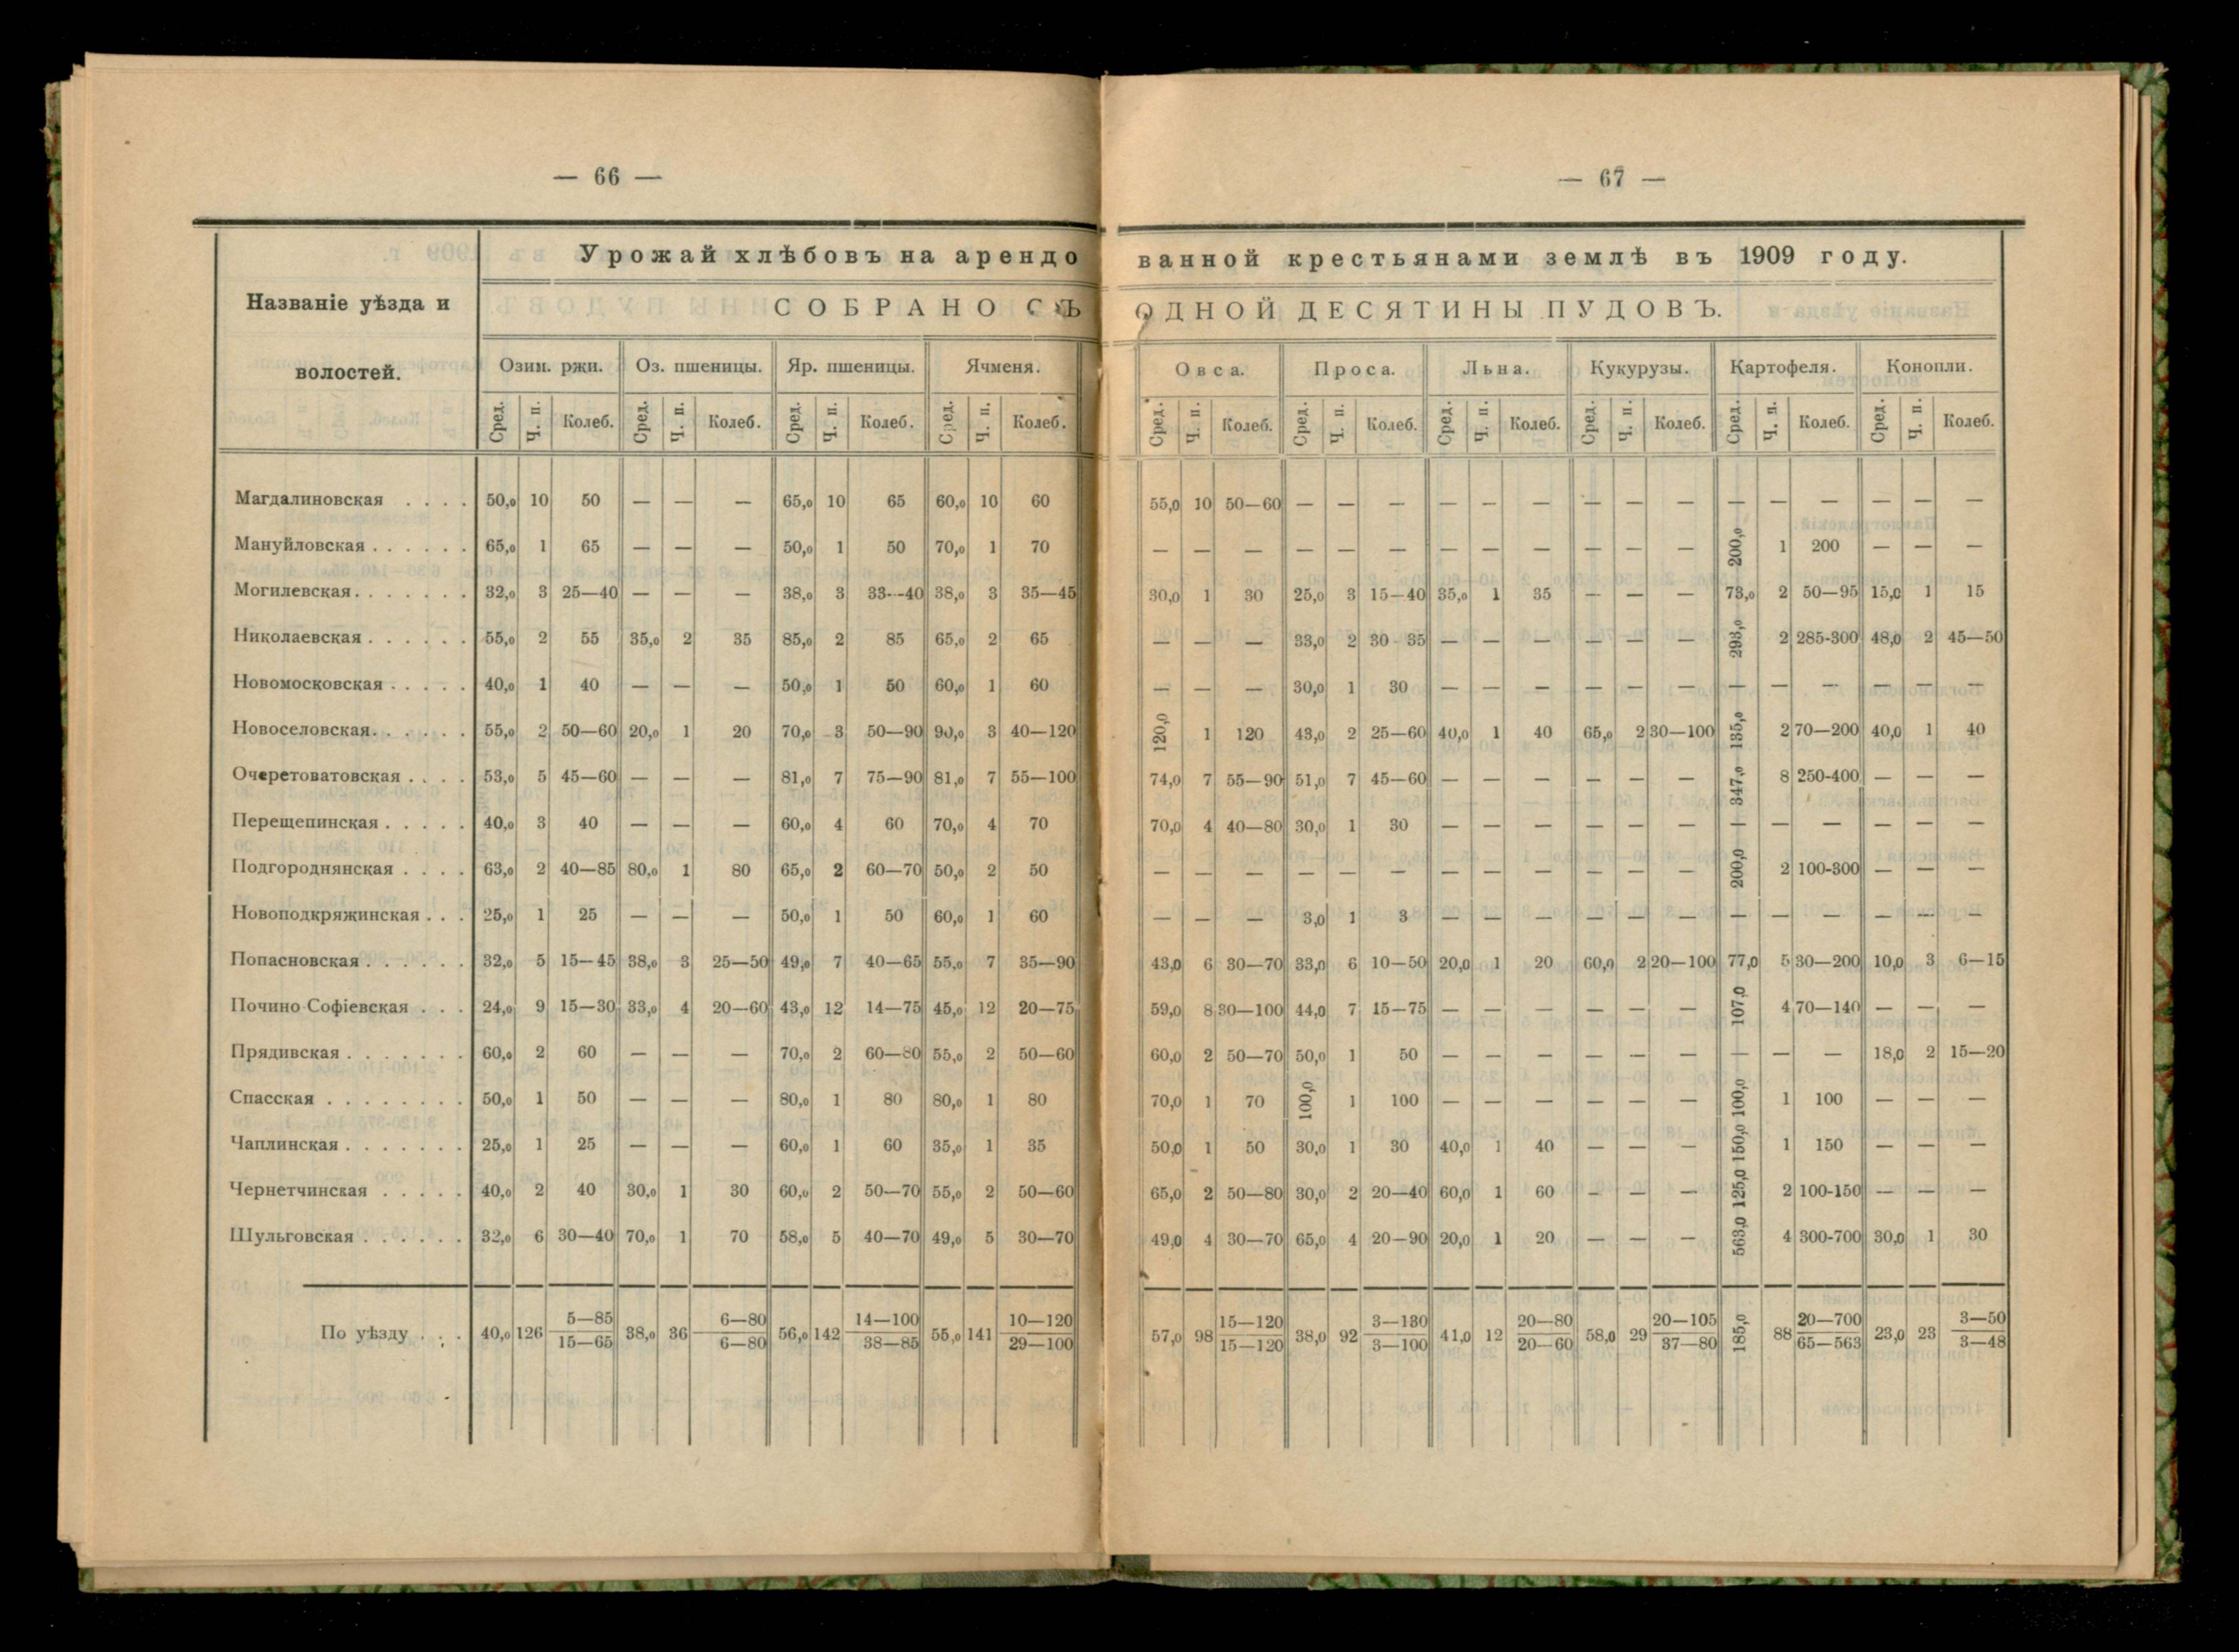 — 66 —
Названіе уѣзда и волостей.
Урожай хлѣбовъ на арендо
СОБРАНО СЪ
Озим. ржи. Оз. пшеницы. Яр. пшеницы. Ячменя.
Сред. Ч. п. Колеб. Сред. Ч. п. Колеб. Сред. Ч. п. Колеб. Сред. Ч. п. Колеб.
Магдалиновская . . . . 50,0 10 50 — — — 65,0 10 65 60,0 10 60
Мануйловская . . . . . . 65,0 1 65 — — — 50,0 1 50 70,0 1 70
Могилевская . . . . . . . 32,0 3 25—40 — — — 38,0 3 33—40 38,0 3 35—45
Николаевская . . . . . . 55,0 2 55 35,0 2 35 85,0 2 85 65,0 2 65
Новомосковская . . . . . 40,0 1 40 — — — 50,0 1 50 60,0 1 60
Новоселовская . . . . . . 55,0 2 50—60 20,0 1 20 70,0 3 50—90 90,0 3 40—120
Очеретоватовская . . . . 53,0 5 45—60 — — — 81,0 7 75—90 81,0 7 55—100
Перещепинская . . . . . 40,0 3 40 — — — 60,0 4 60 70,0 4 70
Подгороднянская . . . . 63,0 2 40—85 80,0 1 80 65,0 2 60—70 50,0 2 50
Новоподкряжинская . . . 25,0 1 25 — — — 50,0 1 50 60,0 1 60
Попасновская . . . . . . 32,0 5 15—45 38,0 3 25—50 49,0 7 40—65 55,0 7 35—90
Почино Софіевская . . . 24,0 9 15—30 33,0 4 20—60 43,0 12 14—75 45,0 12 20—75
Прядивская . . . . . . . 60,0 2 60 — — — 70,0 2 60—80 55,0 2 50—60
Спасская . . . . . . . . 50,0 1 50 — — — 80,0 1 80 80,0 1 80
Чаплинская . . . . . . . 25,0 1 25 — — — 60,0 1 60 35,0 1 35
Чернетчинская . . . . . 40,0 2 40 30,0 1 30 60,0 2 50—70 55,0 2 50—60
Шульговская . . . . . . 32,0 6 30—40 70,0 1 70 58,0 5 40—70 49,0 5 30—70
По уѣзду . . . 40,0 126 5—85 15—65 38,0 36 6—80 6—80 56,0 142 14—100 38—85 55,0 141 10—120 29—100
— 67 —
ванной крестьянами землѣ въ 1909 году.
ОДНОЙ ДЕСЯТИНЫ ПУДОВЪ.
Овса. Проса. Льна. Кукурузы. Картофеля. Конопли.
Сред. Ч. п. Колеб. Сред. Ч. п. Колеб. Сред. Ч. п. Колеб. Сред. Ч. п. Колеб. Сред. Ч. п. Колеб. Сред. Ч. п. Колеб.
55,0 10 50—60 — — — — — — — — — — — — — — —
— — — — — — — — — — — — 200,0 1 200 — — —
30,0 1 30 25,0 3 15—40 35,0 1 35 — — — 73,0 2 50—95 15,0 1 15
— — — 33,0 2 30 35 — — — — — — 293,0 2 285-300 48,0 2 45—50
— — — 30,0 1 30 — — — — — — — — — — — —
120,0 1 120 43,0 2 25—60 40,0 1 40 65,0 2 30—100 135,0 2 70—200 40,0 1 40
74,0 7 55—90 51,0 7 45—60 — — — — — — 347,0 8 250-400 — — —
70,0 4 40—80 30,0 1 30 — — — — — — — — — — — —
— — — — — — — — — — — — 200,0 2 100-300 — — —
— — — 3,0 1 3 — — — — — — — — — — — —
43,0 6 30—70 33,0 6 10—50 20,0 1 20 60,0 2 20—100 77,0 5 30—200 10,0 3 6—15
59,0 8 30—100 44,0 7 15—75 — — — — — — 107,0 4 70—140 — — —
60,0 2 50—70 50,0 1 50 — — — — — — — — — 18,0 2 15—20
70,0 1 70 100,0 1 100 — — — — — — 100,0 1 100 — — —
50,0 1 50 30,0 1 30 40,0 1 40 — — — 150,0 1 150 — — —
65,0 2 50—80 30,0 2 20—40 60,0 1 60 — — — 125,0 2 100-150 — — —
49,0 4 30—70 65,0 4 20—90 20,0 1 20 — — — 563,0 4 300-700 30,0 1 30
57,0 98 15—120 15—120 38,0 92 3—130 3—100 41,0 12 20—80 20—60 58,0 29 20—105 37—80 185,0 88 20—700 65—563 23,0 23 3—50 3—48